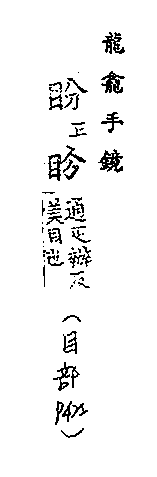 龍龕手鏡
盼正
通疋辦反
美目也
（目部